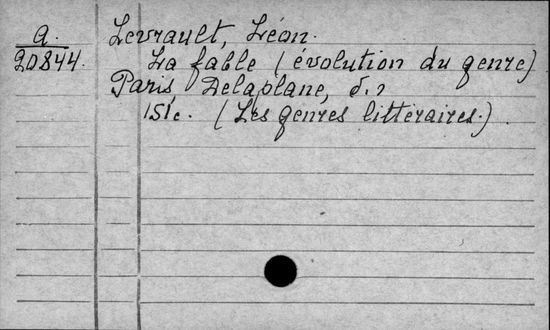 a. Levrault, Léon.
20844. La fable (évolution du genre)
Paris, Delaplane, s. d.
(Les genres littéraires.)